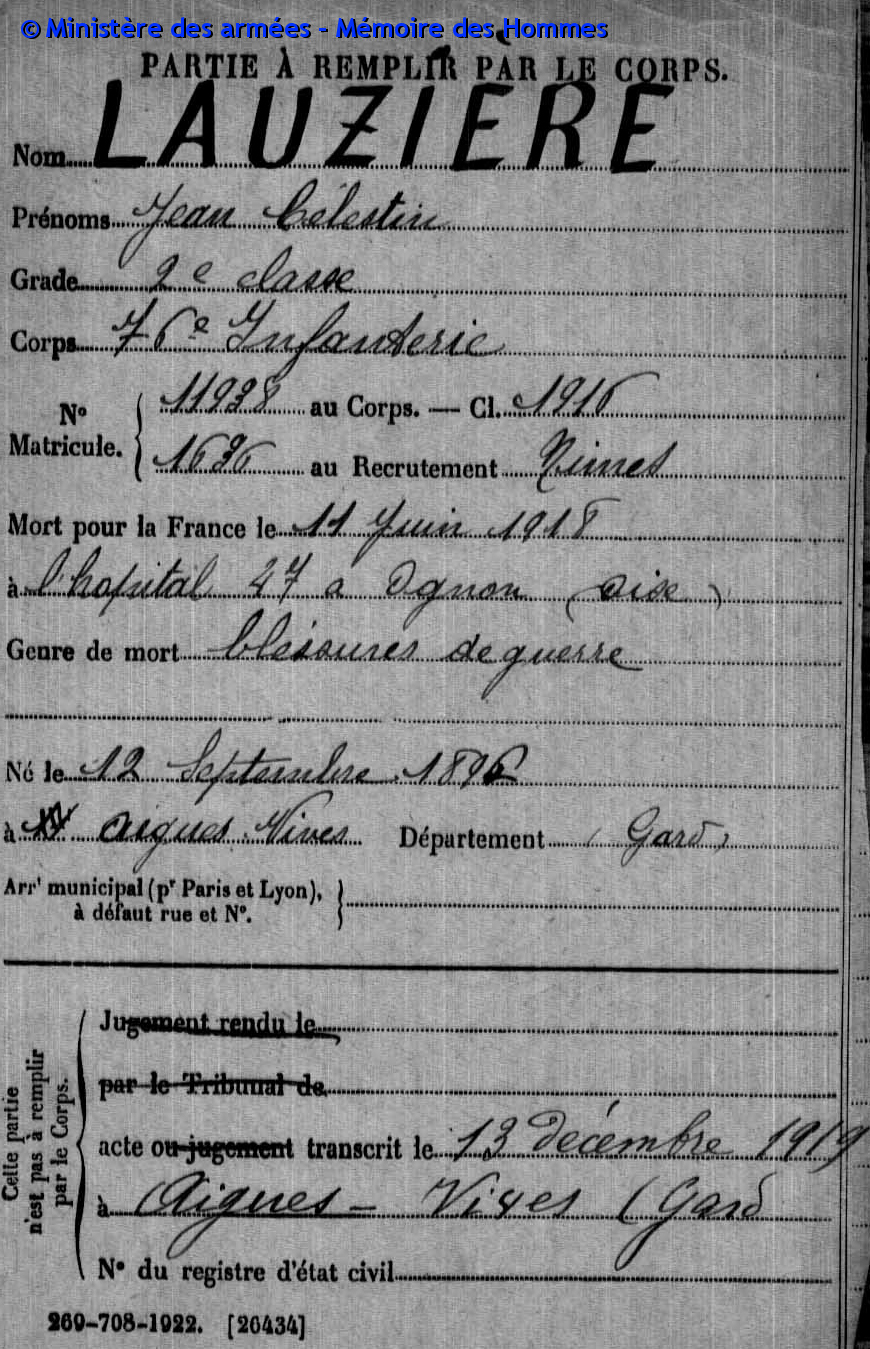 © Ministère des armées - Mémoire des Hommes
PARTIE À REMPLIR PAR LE CORPS.
Nom LAUZIERE
Prénoms Jean Célestin
Grade 2e classe
Corps 76e Infanterie
No Matricule. { 11938 au Corps. — Cl. 1916
1636 au Recrutement Nimes
Mort pour la France le 11 Juin 1918
à l'hopital 27 a Ognon (Oise)
Genre de mort blessures de guerre
Né le 12 Septembre 1896
à Aigues Vives Département (Gard)
Arrt municipal (pr Paris et Lyon),
à défaut rue et No.
Cette partie
n'est pas à remplir
par le Corps.
Jugement rendu le
par le Tribunal de
acte ou jugement transcrit le 13 décembre 1919
à Aigues-Vives (Gard
No du registre d'état civil
269-708-1922. [26434]